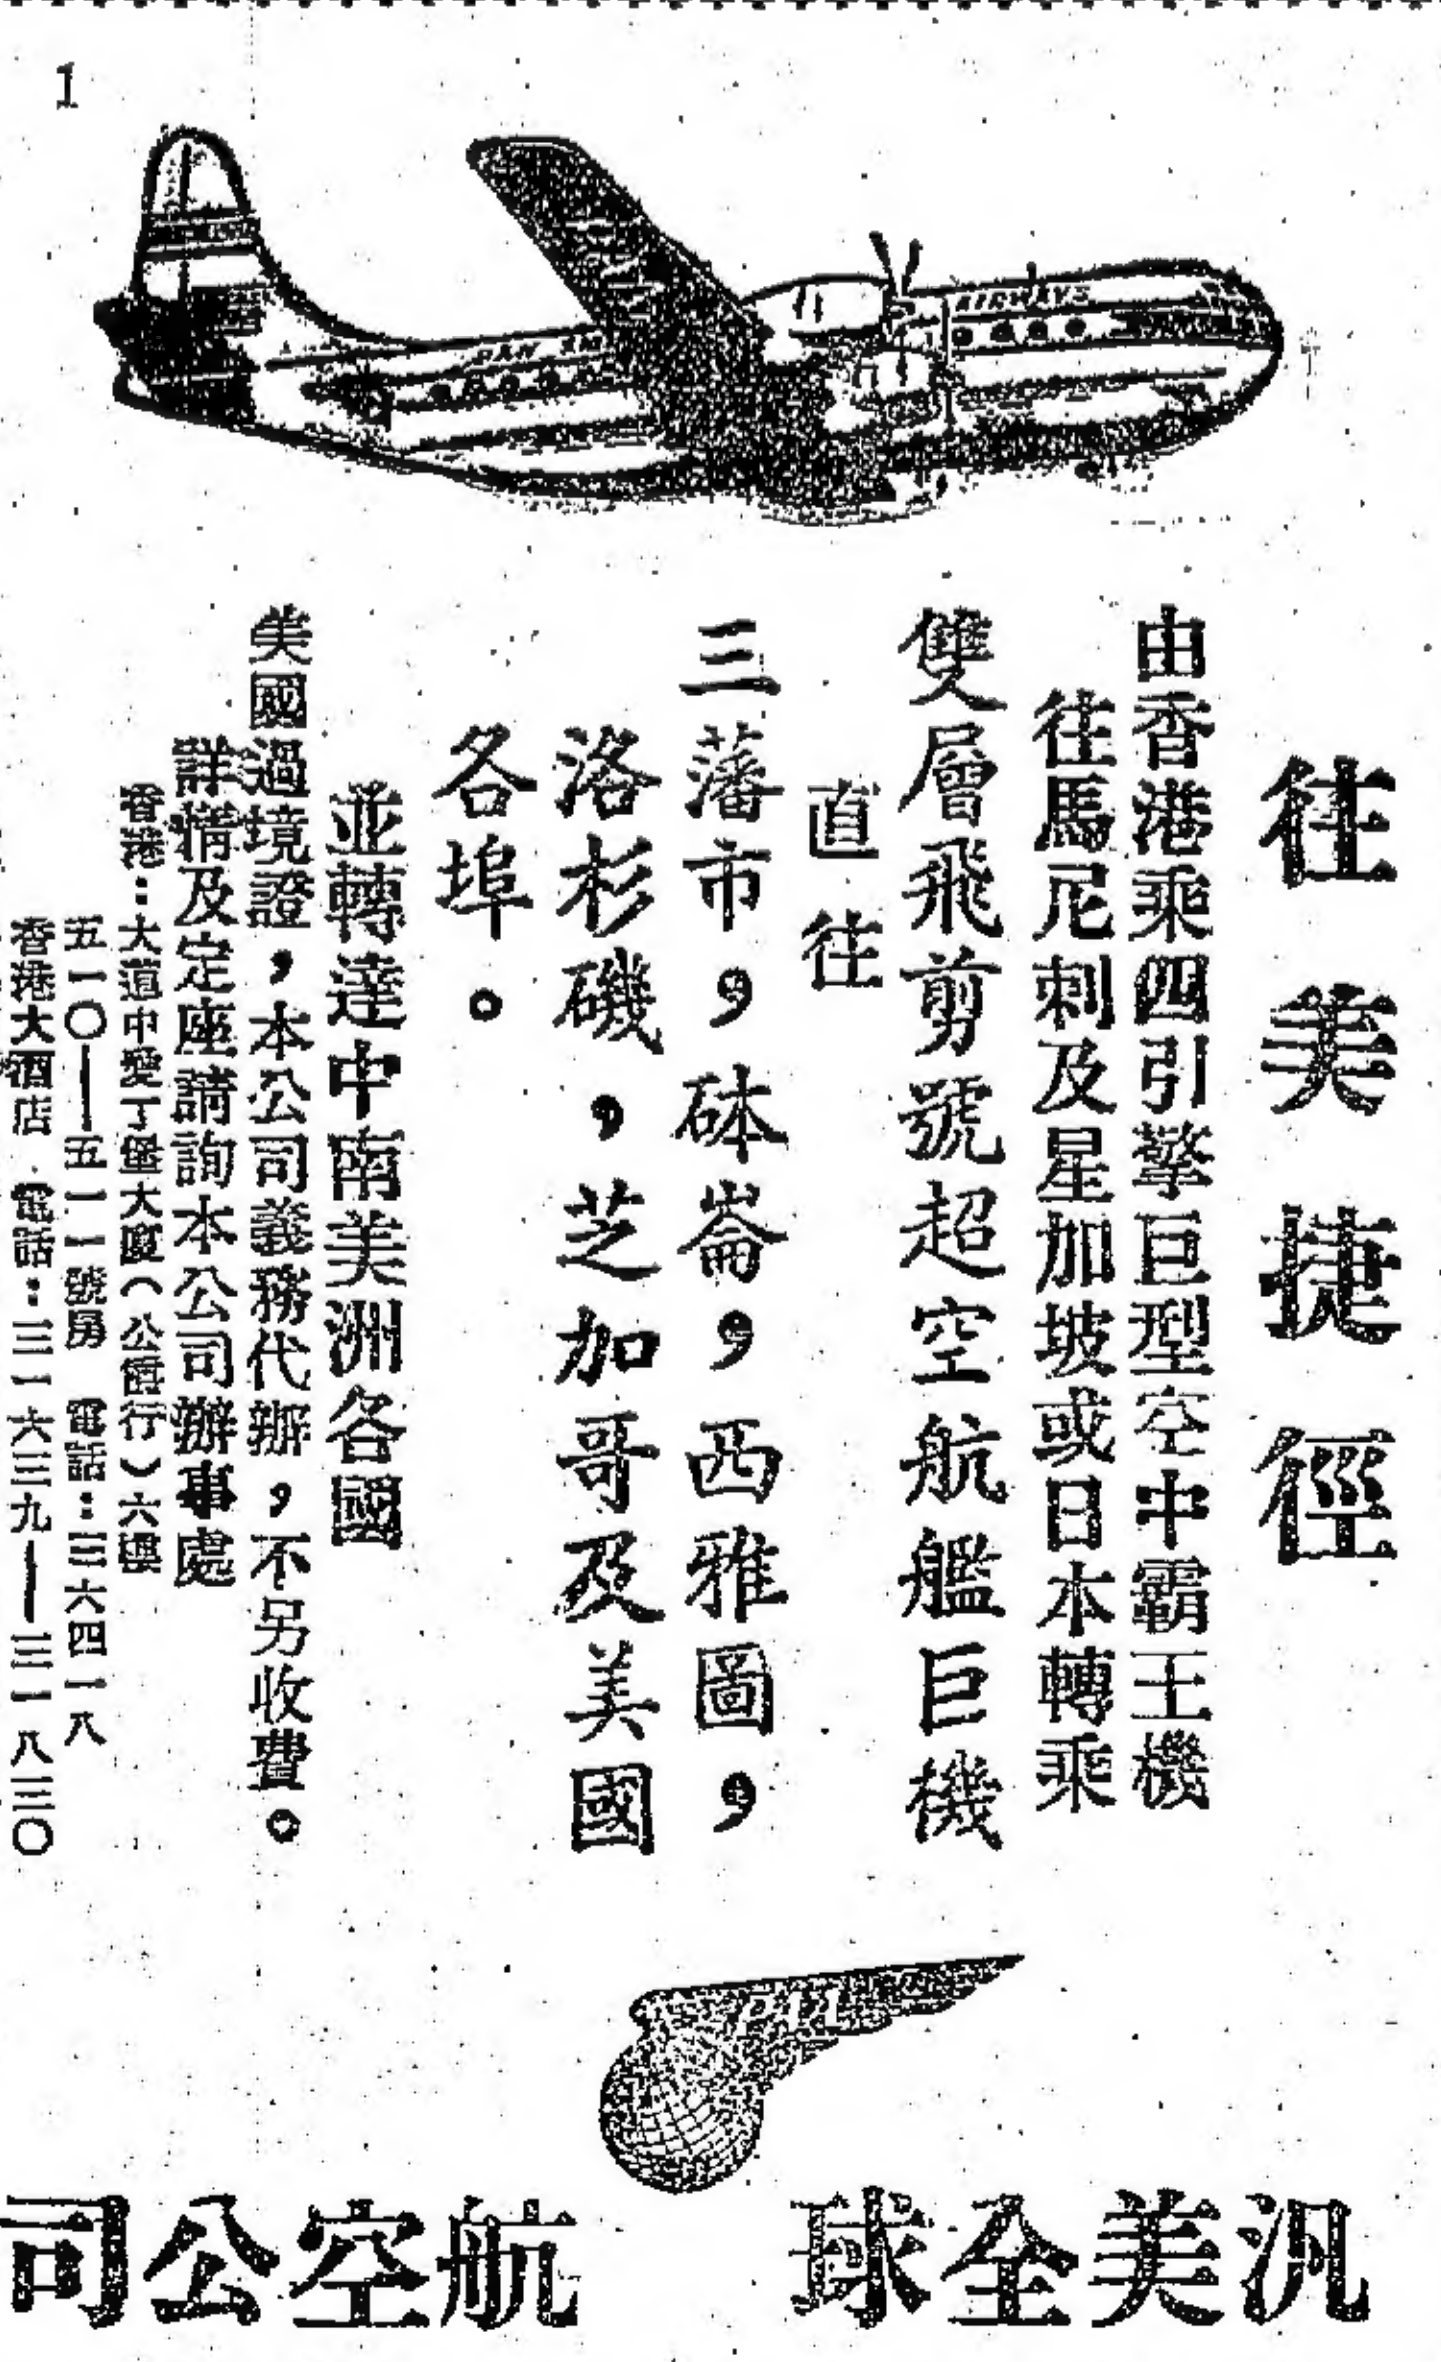 1
PAN AM
AIRWAYS
往美捷徑
由香港乘四引擎巨型空中霸王機
往馬尼剌及星加坡或日本轉乘
雙層飛剪號超空航艦巨機
直往
三藩市，砵崙，西雅圖，
洛杉磯，芝加哥及美國
各埠。
並轉達中南美洲各國
美國過境證，本公司義務代辦，不另收費。
詳情及定座請詢本公司辦事處
香港：大道中愛丁堡大廈（公爵行）六樓
五一〇—五一一號房 電話：三六四一八
香港大酒店 電話：三一六三九—三一八三〇
PAA
汎美全球 航空公司